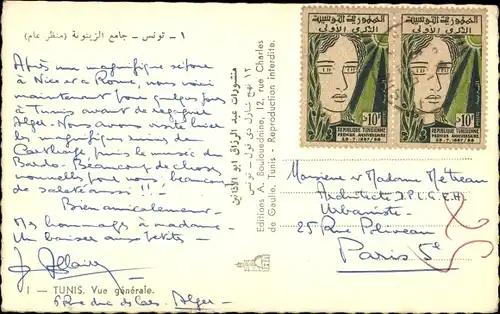 ١ - تونس - جامع الزيتونة (منظر عام)
Après une magnifique
à Nice et à Rome, nous voici
maintenant pour quelques jours
à Tunis avant de rejoindre
Alger. Nous avons visité hier
les magnifiques ruines de
Carthage puis le musée du
Bardo. Beaucoup de choses
nouvelles pour nous beaucoup
de saletés aussi !!!
Bien amicalement.
Mes hommages à madame.
Un baiser aux petits -
1 - TUNIS. Vue générale.
Alger -
منشورات عبد الرزاق
١٢ نهج شارل دي قول - تونس
Editions A. Bouloueднine, 12, rue Charles
de Gaulle, Tunis - Reproduction interdite.
الجمهورية التونسية
الذكرى الأولى
10F
REPUBLIQUE TUNISIENNE
PREMIER ANNIVERSAIRE
25-7-1957/58
الجمهورية التونسية
الذكرى الأولى
10F
REPUBLIQUE TUNISIENNE
PREMIER ANNIVERSAIRE
25-7-1957/58
Monsieur et Madame Métreau
Architecte D.P.L.G. E.H.
Urbaniste -
25 Rue
Paris 5e